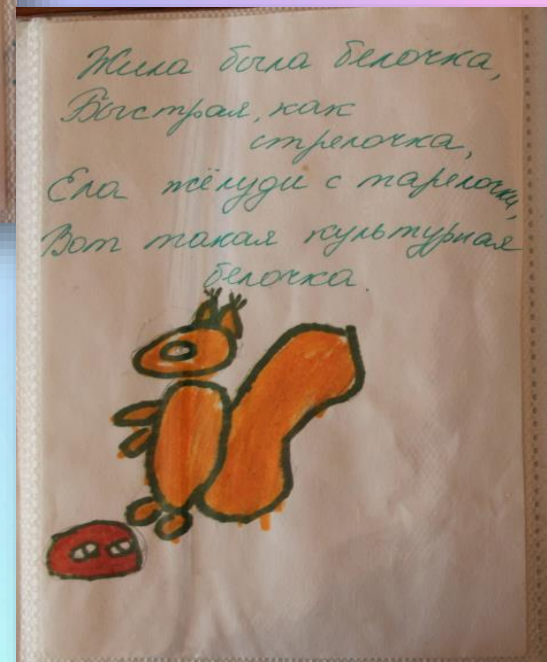 Жила была белочка,
Быстрая, как
стрелочка,
Ела жёлуди с тарелочки,
Вот такая культурная
белочка.